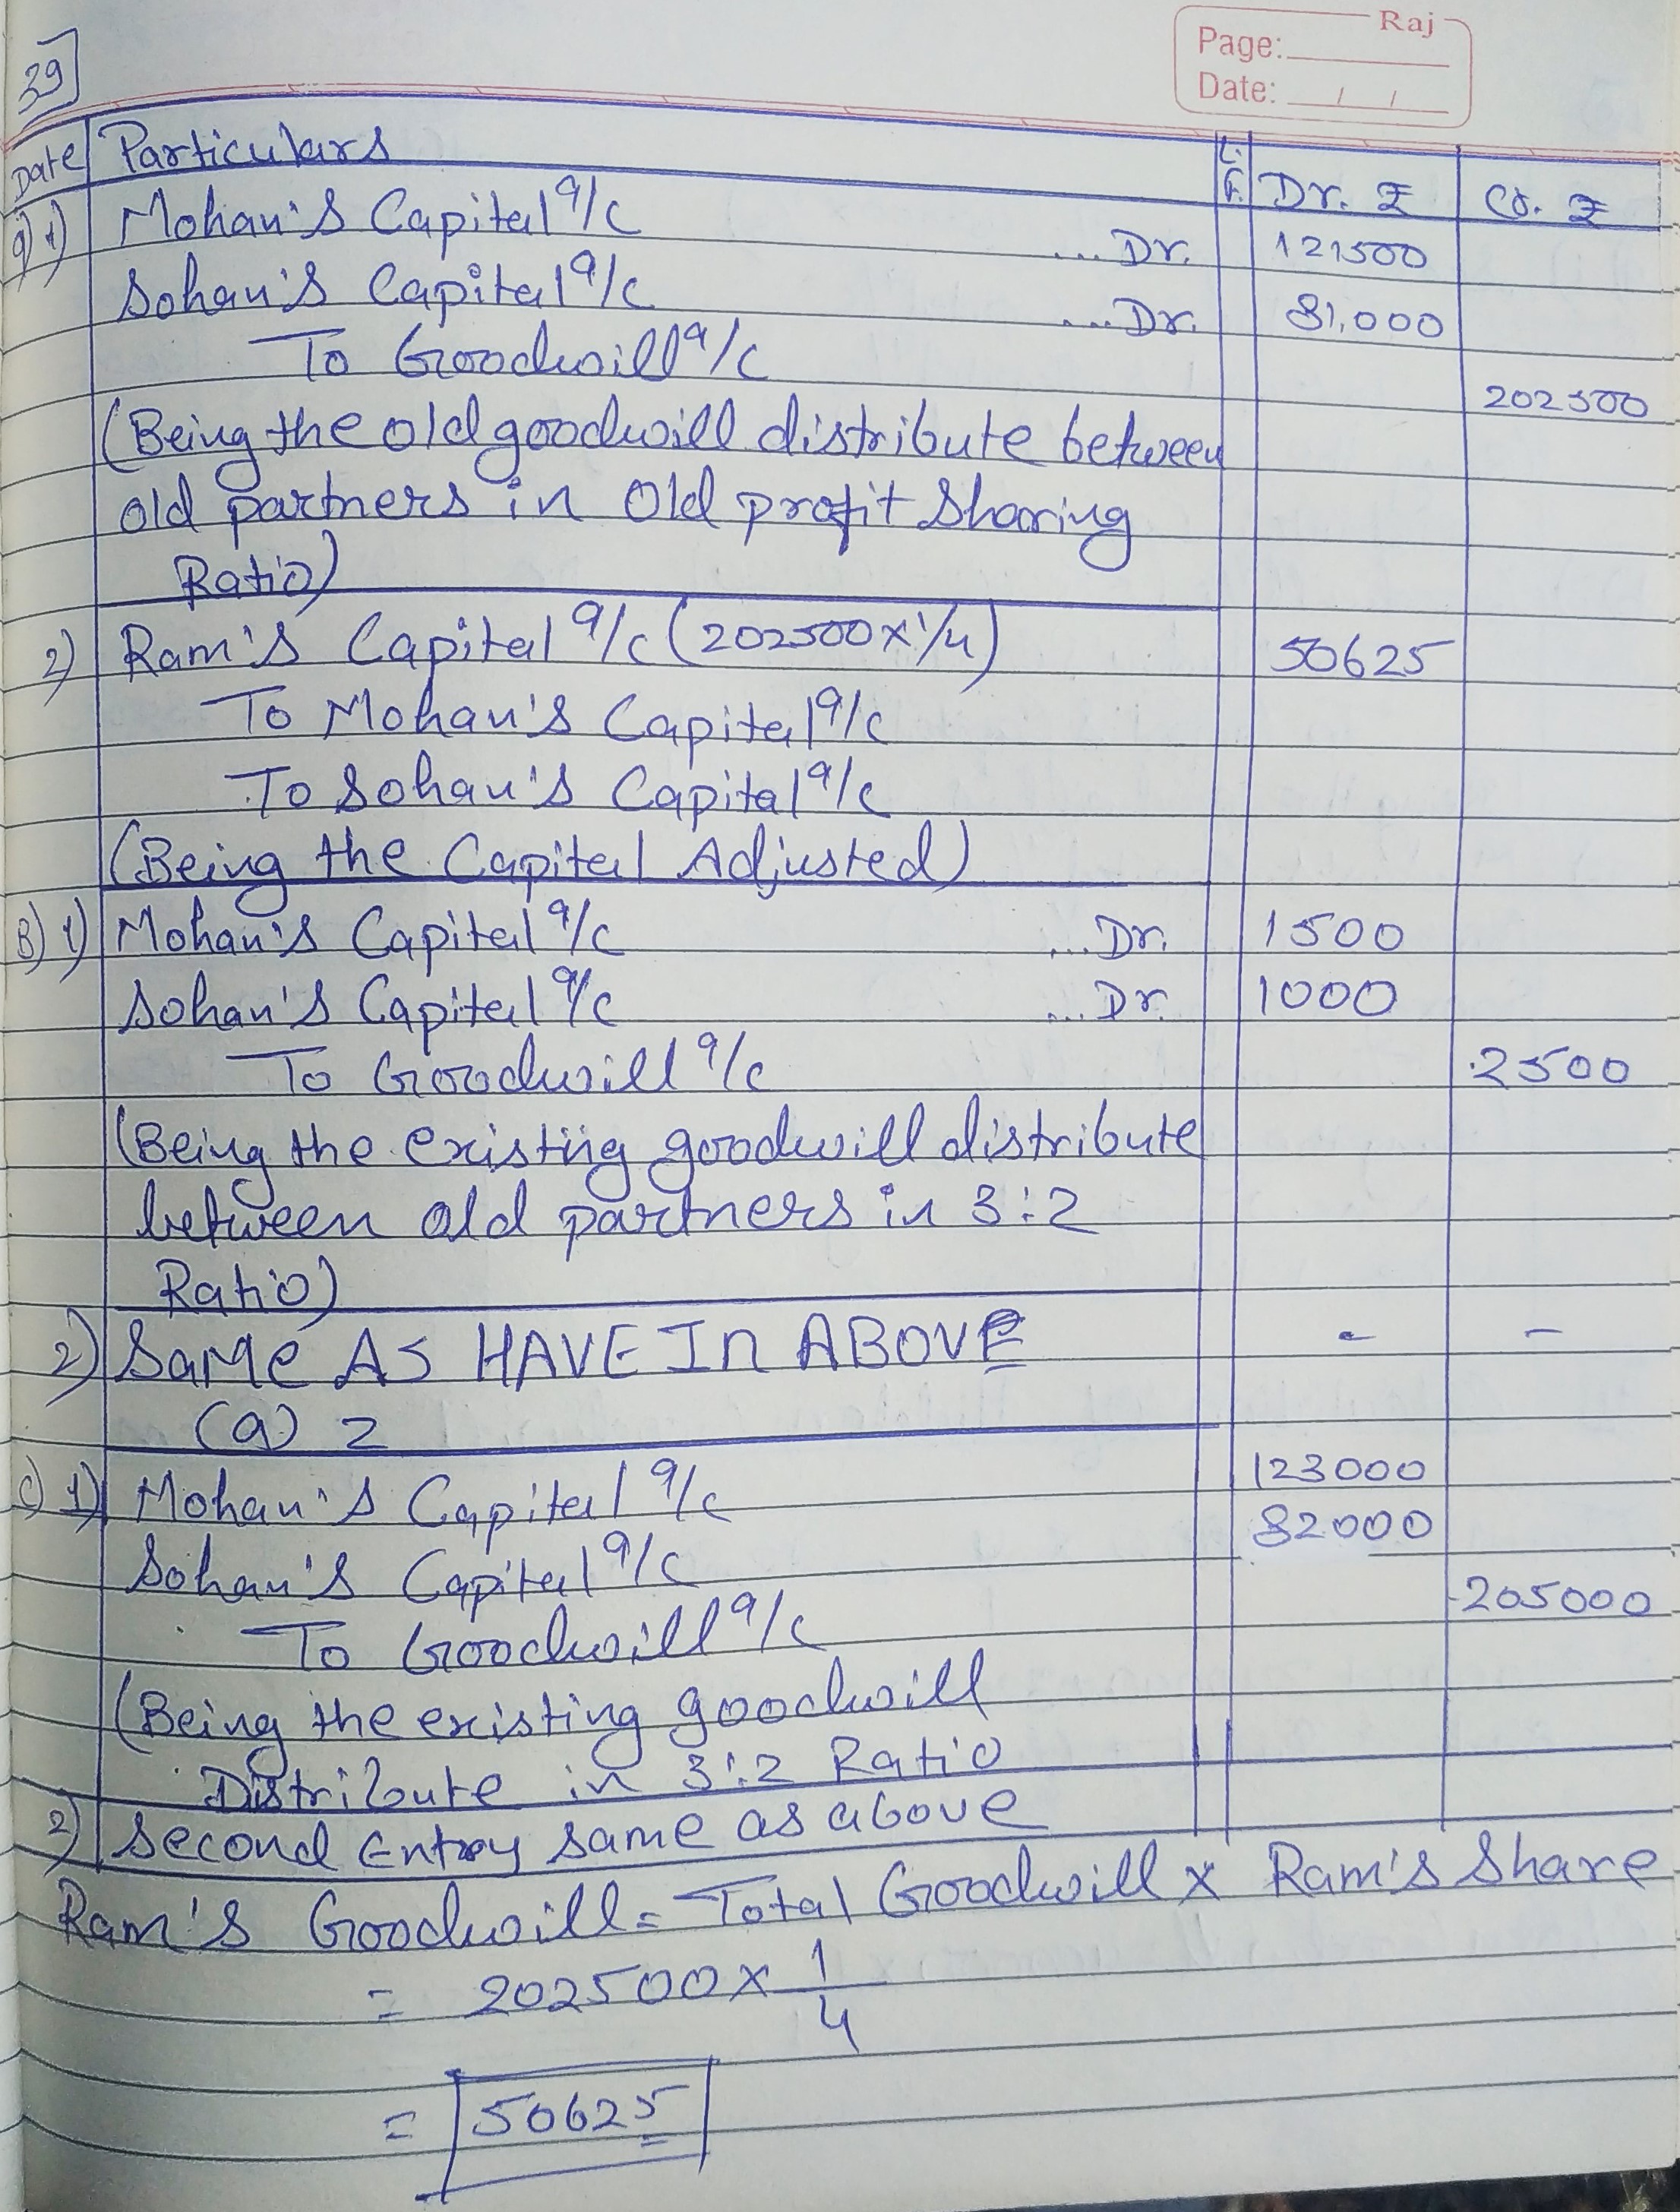 Raj
Page:
Date: / /
39
Date Particulars L.F. Dr. ₹ Cr. ₹
a) 1) Mohan's Capital a/c ... Dr. 121500
Sohan's Capital a/c ... Dr. 81,000
To Goodwill a/c 202500
(Being the old goodwill distribute between
old partners in Old profit Sharing
Ratio)
2) Ram's Capital a/c (202500 x 1/4) 50625
To Mohan's Capital a/c
To Sohan's Capital a/c
(Being the Capital Adjusted)
B) 1) Mohan's Capital a/c ... Dr. 1500
Sohan's Capital a/c ... Dr. 1000
To Goodwill a/c 2500
(Being the existing goodwill distribute
between old partners in 3:2
Ratio)
2) Same AS HAVE In ABOVE - -
(a) 2
c) 1) Mohan's Capital a/c 123000
Sohan's Capital a/c 82000
To Goodwill a/c 205000
(Being the existing goodwill
Distribute in 3:2 Ratio
2) Second Entry same as above
Ram's Goodwill = Total Goodwill x Ram's Share
= 202500 x 1/4
= 50625